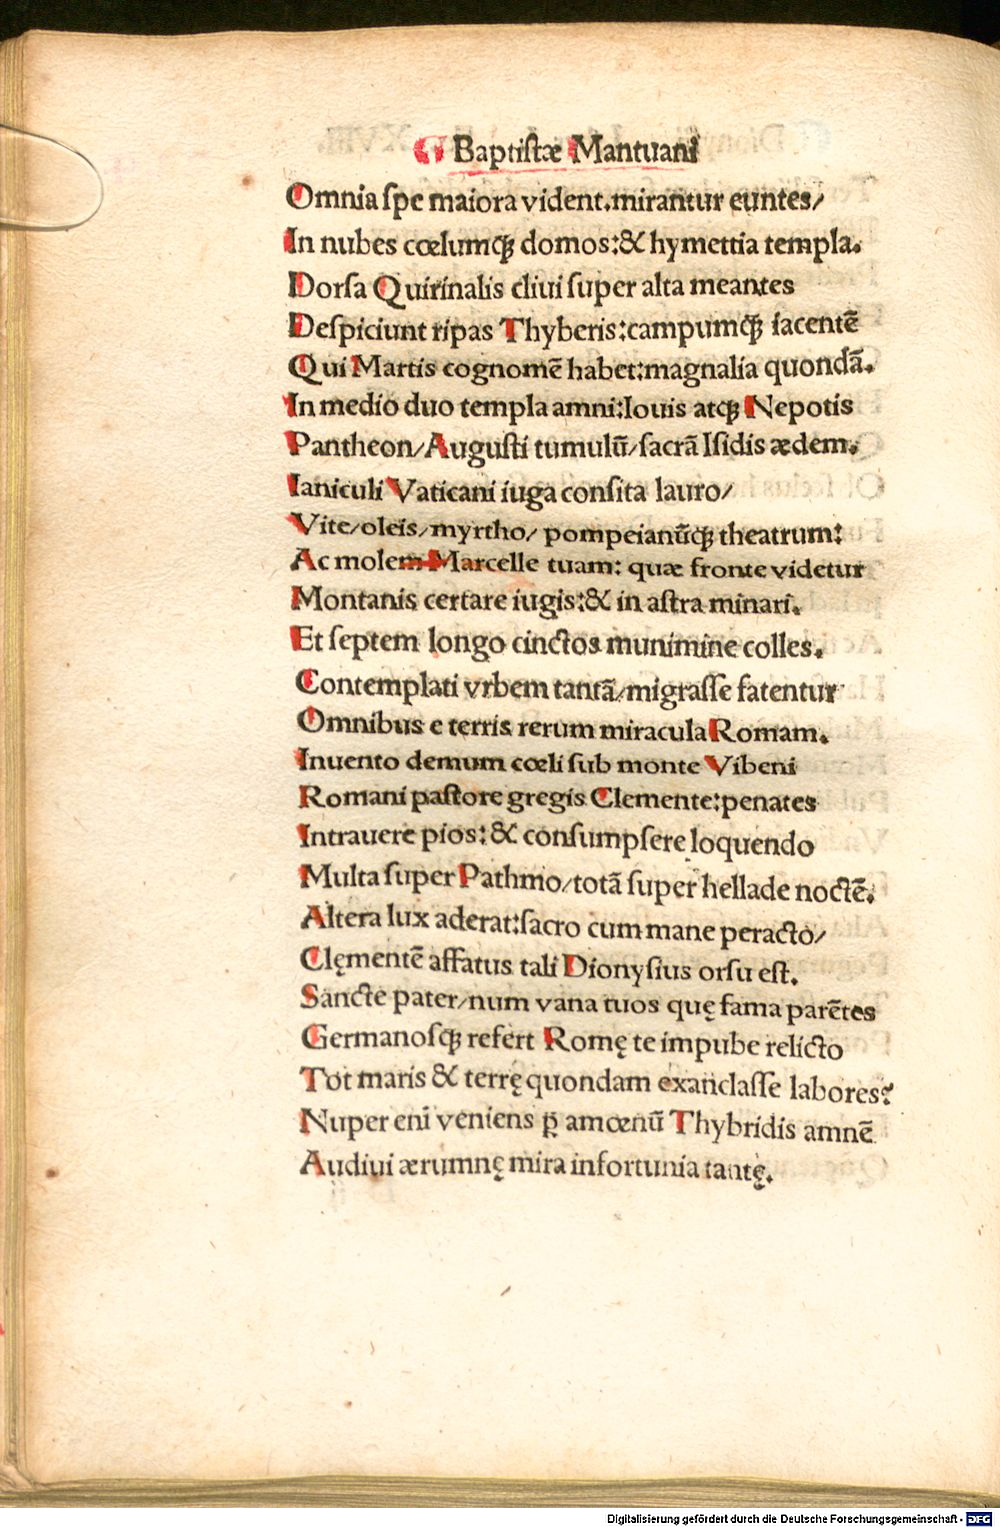 ¶ Baptistæ Mantuani
Omnia ſpe maiora vident.mirantur euntes/
In nubes cœlumqꝫ domos:& hymettia templa.
Dorſa Quirinalis cliui ſuper alta meantes
Deſpiciunt ripas Thyberis:campumqꝫ iacentē
Qui Martis cognomē habet:magnalia quondā.
In medio duo templa amni:Iouis atqꝫ Nepotis
Pantheon/Augusti tumulū/ſacrā Iſidis ædem.
Ianiculi Vaticani iuga conſita lauro/
Vite/oleis/myrtho/ pompeianūqꝫ theatrum:
Ac molem Marcelle tuam: quæ fronte videtur
Montanis certare iugis:& in aſtra minari.
Et ſeptem longo cinctos munimine colles.
Contemplati vrbem tantā/migraſſe fatentur
Omnibus e terris rerum miracula Romam.
Inuento demum cœli ſub monte Vibeni
Romani paſtore gregis Clemente:penates
Intrauere pios:& conſumpſere loquendo
Multa ſuper Pathmo/totā ſuper hellade noctē.
Altera lux aderat:ſacro cum mane peracto/
Clęmentē affatus tali Dionyſius orſu eſt.
Sancte pater/num vana tuos quę fama parētes
Germanoſqꝫ refert Romę te impube relicto
Tot maris & terrę quondam exanclaſſe labores?
Nuper eni veniens ꝑ amœnū Thybridis amnē
Audiui ærumnę mira infortunia tantę.
Digitalisierung gefördert durch die Deutsche Forschungsgemeinschaft - DFG